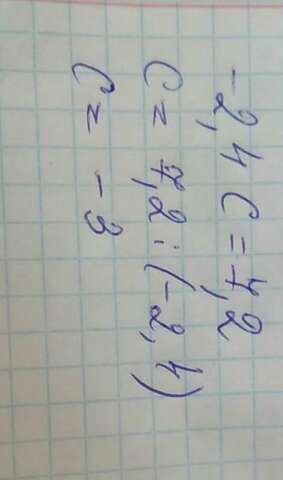 -2,4 c = 7,2
c = 7,2 : (-2,4)
c = -3